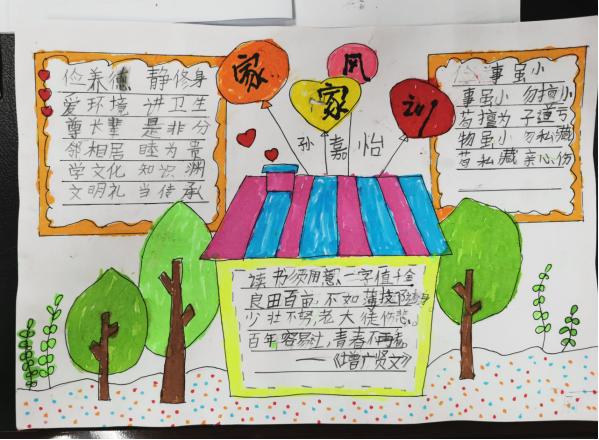 家风家训
孙嘉怡
俭养德 静修身
爱环境 讲卫生
尊长辈 是非分
邻相居 睦为贵
学文化 知识渊
文明礼 当传承
事虽小
事虽小 勿擅小
苟擅为 子道亏
物虽小 勿私藏
苟私藏 亲心伤
读书须用意,一字值千金
良田百亩,不如薄技随身
少壮不努,老大徒伤悲。
百年容易过,青春不再来
——《增广贤文》